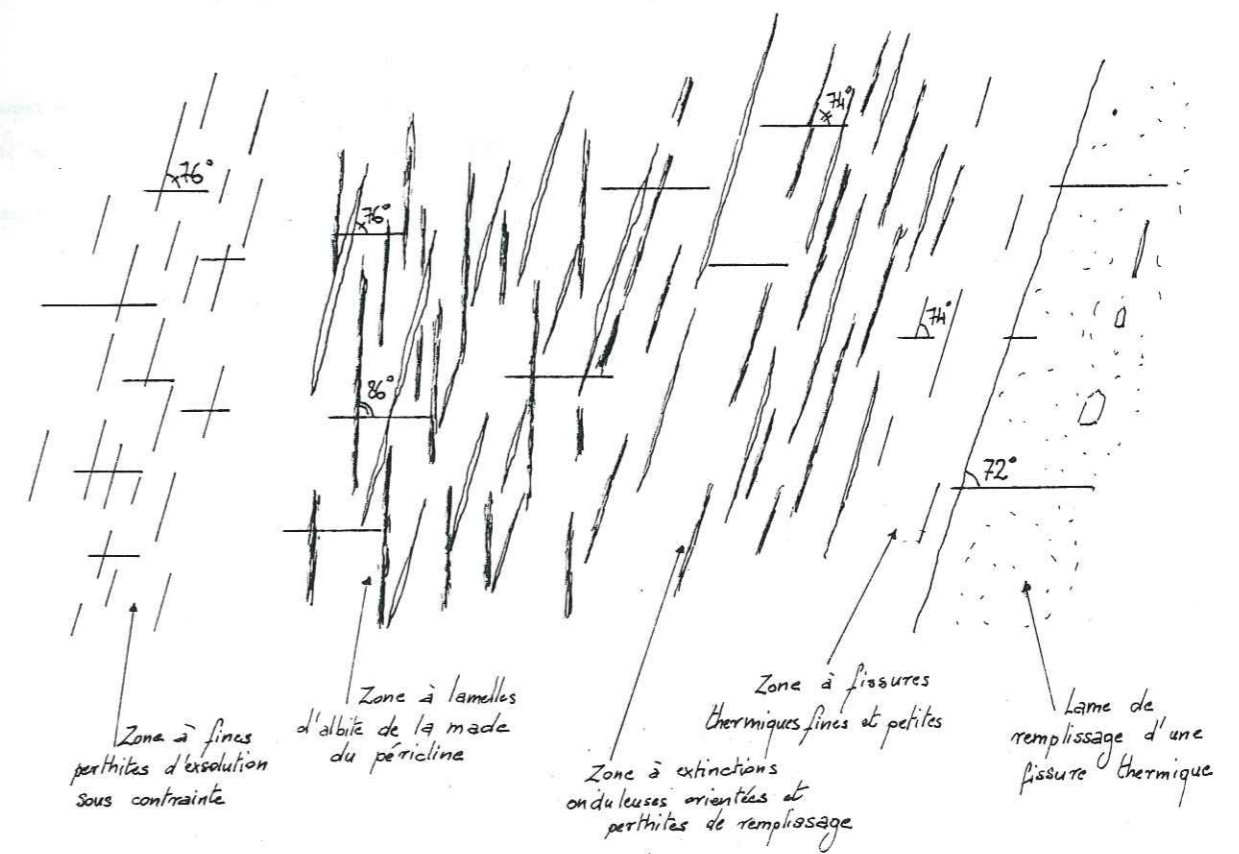 76°
76°
86°
74°
74°
72°
Zone à fines
perthites d'exsolution
sous contrainte
Zone à lamelles
d'albite de la made
du péricline
Zone à extinctions
onduleuses orientées et
perthites de remplissage
Zone à fissures
thermiques fines et petites
Lame de
remplissage d'une
fissure thermique